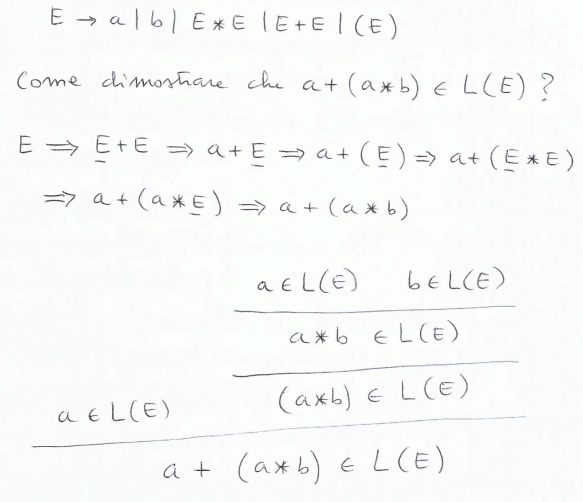 E → a | b | E * E | E + E | (E)
Come dimostrare che a + (a * b) ∈ L(E) ?
E ⇒ E + E ⇒ a + E ⇒ a + (E) ⇒ a + (E * E)
⇒ a + (a * E) ⇒ a + (a * b)
a ∈ L(E) b ∈ L(E)
a * b ∈ L(E)
(a * b) ∈ L(E)
a ∈ L(E)
a + (a * b) ∈ L(E)